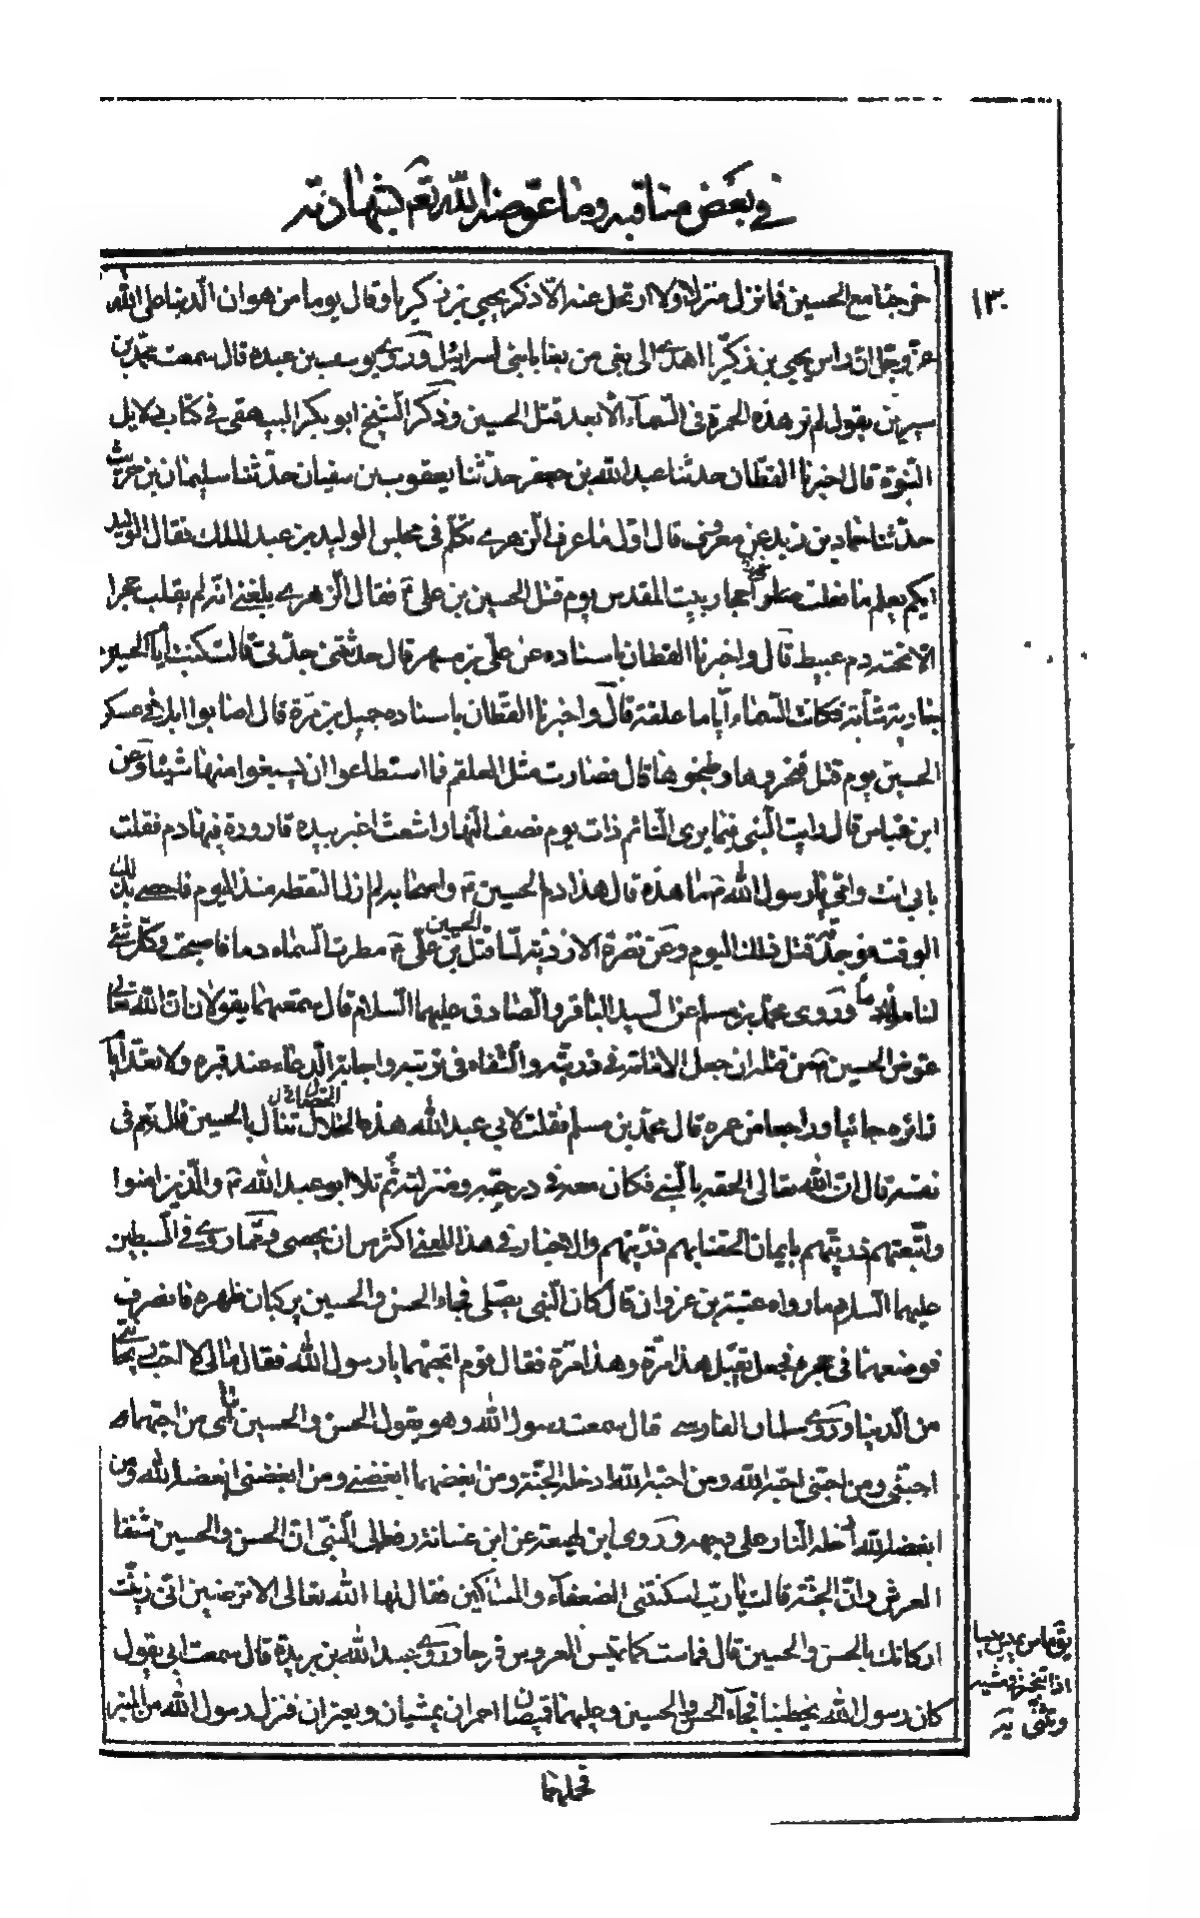 في بعض مناقبه وما عوضه الله تعم بشهادته
١٣٠
خرجنا مع الحسين فما نزل منزلا ولا ارتحل عنه الّا ذكر يحيى بن زكريا وقال يوما من هوان الدنيا على الله
عزّ وجلّ انّ راس يحيى بن زكريّا اهدى الى بغى من بغايا بنى اسرائيل وروى يوسف بن عبدة قال سمعت محمّد بن
سيرين يقول لم تر هذه الحمرة فى السّماء الّا بعد قتل الحسين وذكر الشيخ ابو بكر البيهقى فى كتاب دلايل
النّبوّة قال اخبرنا القطّان حدثنا عبد الله بن جعفر حدّثنا يعقوب بن سفيان حدّثنا سليمان بن حرب
حدّثنا حماد بن زيد عن معمر قال اوّل ما عرف الزهرى تكلّم فى مجلس الوليد بن عبد الملك فقال الوليد
ايكم يعلم ما فعلت احجار بيت المقدس يوم قتل الحسين بن على ع فقال الزهرى بلغنى انه لم يقلب حجر
الّا تحته دم عبيط قال واخبرنا القطان باسناده عن علىّ بن مسهر قال حدثتنى جدّتى قالت كنت ايام الحسين
جارية شابّة فكانت السّماء ايّاما علقة قال واخبرنا القطّان باسناده جميل بن مرّة قال اصابوا ابلا فى عسكر
الحسين يوم قتل فنحروها وطبخوها قال فصارت مثل العلقم فما استطاعوا ان يسيغوا منها شيئا وعن
ابن عبّاس قال رايت النّبى فيما يرى النّائم ذات يوم نصف النّهار اشعث اغبر بيده قارورة فيها دم فقلت
بابى انت وامّى يا رسول الله ما هذه قال هذا دم الحسين ع واصحابه لم ازل التقطه منذ اليوم فاحصى ذلك
الوقت فوجد قتل ذلك اليوم وعن نضرة الازدية لمّا قتل الحسين بن علىّ ع مطرت السّماء دما فاصبحت وكلّ شئ
لنا ملان دما وروى محمّد بن مسلم عن السّيد الباقر والصّادق عليهما السّلام قال سمعتهما يقولان انّ الله تعالى
عوض الحسين ع من قتله ان جعل الامامة فى ذريّته والشّفاء فى تربته واجابة الدّعاء عند قبره ولا تعدّ ايام
زائره جائيا وراجعا من عمره قال محمّد بن مسلم فقلت لابى عبد الله هذه الخلال تنال بالحسين قال نعم فى
نفسه قال انّ الله تعالى الحقه بالنّبى فكان معه فى درجته ومنزلته ثم تلا ابو عبد الله ع والّذين امنوا
واتّبعتهم ذريّتهم بايمان الحقنا بهم ذريّتهم والاخبار فى هذا المعنى اكثر من ان يحصى وممّا روى فى السّبطين
عليهما السّلام ما رواه عتبة بن غزوان قال كان النّبى يصلّى فجاء الحسن والحسين يركبان ظهره فانصرف
فوضعهما فى حجره فجعل يقبّل هذا مرّة وهذا مرّة فقال قوم اتحبّهما يا رسول الله فقال مالى لا احب ريحانتى
من الدّنيا وروى سلمان الفارسى قال سمعت رسول الله وهو يقول الحسن والحسين ابناى من احبهما
احبّنى ومن احبّنى احبّه الله ومن احبّه الله ادخله الجنّة ومن ابغضهما ابغضنى ومن ابغضنى ابغضه الله ومن
ابغضه الله ادخله النّار على وجهه وروى ابن لهيعة عن ابن عسانة رفعه الى النّبى انّ الحسن والحسين شنفا
العرش وانّ الجنّة قالت يا ربّ اسكنتنى الضعفاء والمساكين فقال لها الله تعالى الا ترضين انى زيّنت
اركانك بالحسن والحسين قال فماست كما تميس العروس فرحا وروى عبد الله بن بريدة قال سمعت ابى يقول
كان رسول الله يخطبنا فجاء الحسن والحسين وعليهما قميصان احمران يمشيان ويعثران فنزل رسول الله من المنبر
يق ماس يميس ميسا
اذا تبختر فى مشيه
وتثنّى
فحملهما